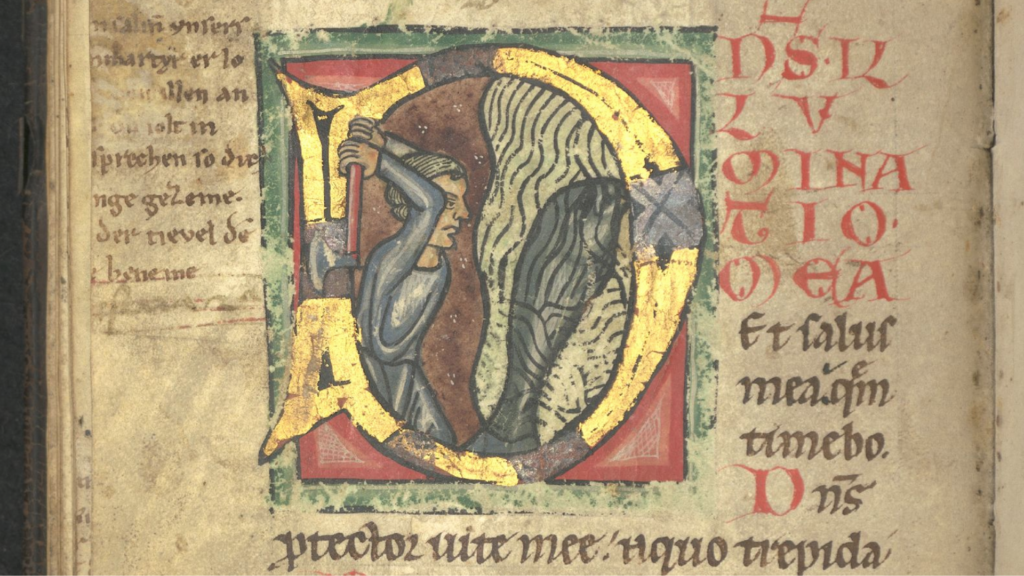 n salm ynsers
martyr er lo
allen an
solt in
sprechen so die
nge gezeme.
der tievel de
heneme
D
NS·IL
LV
MINA
TIO·
MEA
Et salus
mea. qm̄
timebo.
Dn̄s
ptector uite mee. aquo trepida